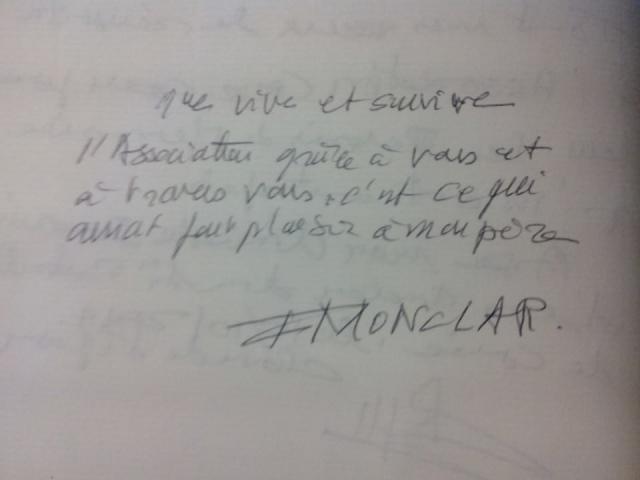 que vive et survive
l'Association grâce à vous et
à travers vous, c'est ce qui
aurait fait plaisir à mon père
F MONCLAR.